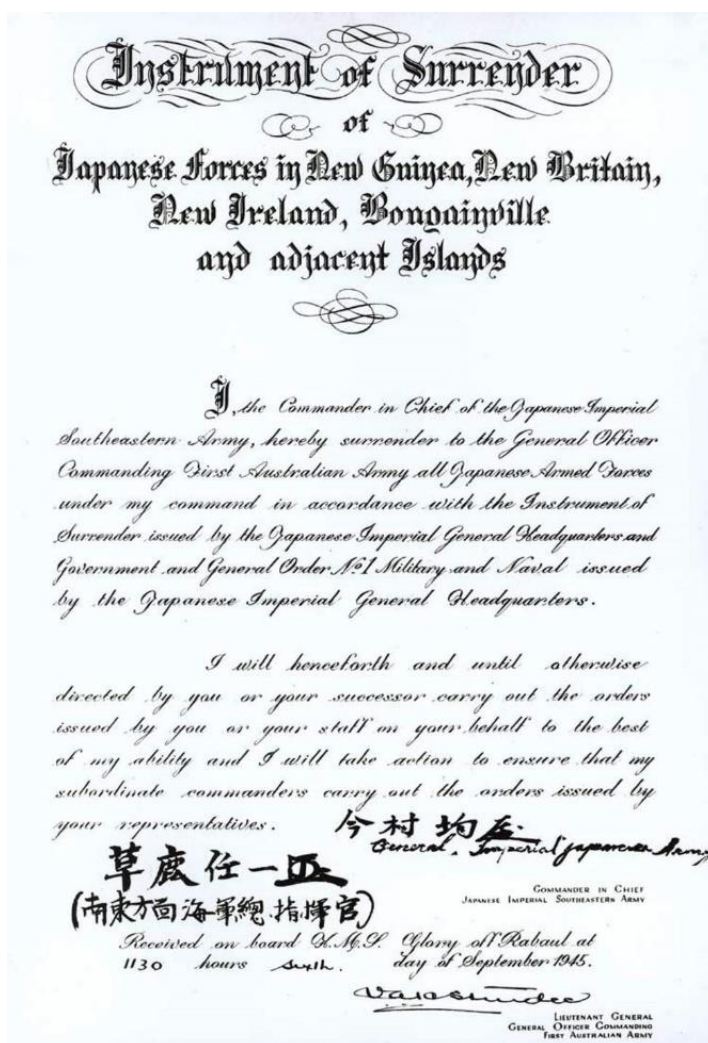 Instrument of Surrender
of
Japanese Forces in New Guinea, New Britain,
New Ireland, Bougainville
and adjacent Islands
I, the Commander in Chief of the Japanese Imperial
Southeastern Army, hereby surrender to the General Officer
Commanding First Australian Army all Japanese Armed Forces
under my command in accordance with the Instrument of
Surrender issued by the Japanese Imperial General Headquarters and
Government and General Order No 1 Military and Naval issued
by the Japanese Imperial General Headquarters.
I will henceforth and until otherwise
directed by you or your successor carry out the orders
issued by you or your staff on your behalf to the best
of my ability and I will take action to ensure that my
subordinate commanders carry out the orders issued by
your representatives.
今村均
General, Imperial Japanese Army
草鹿任一
(南東方面海軍總指揮官)
COMMANDER IN CHIEF
JAPANESE IMPERIAL SOUTHEASTERN ARMY
Received on board H.M.S. Glory off Rabaul at
1130 hours sixth. day of September 1945.
LIEUTENANT GENERAL
GENERAL OFFICER COMMANDING
FIRST AUSTRALIAN ARMY